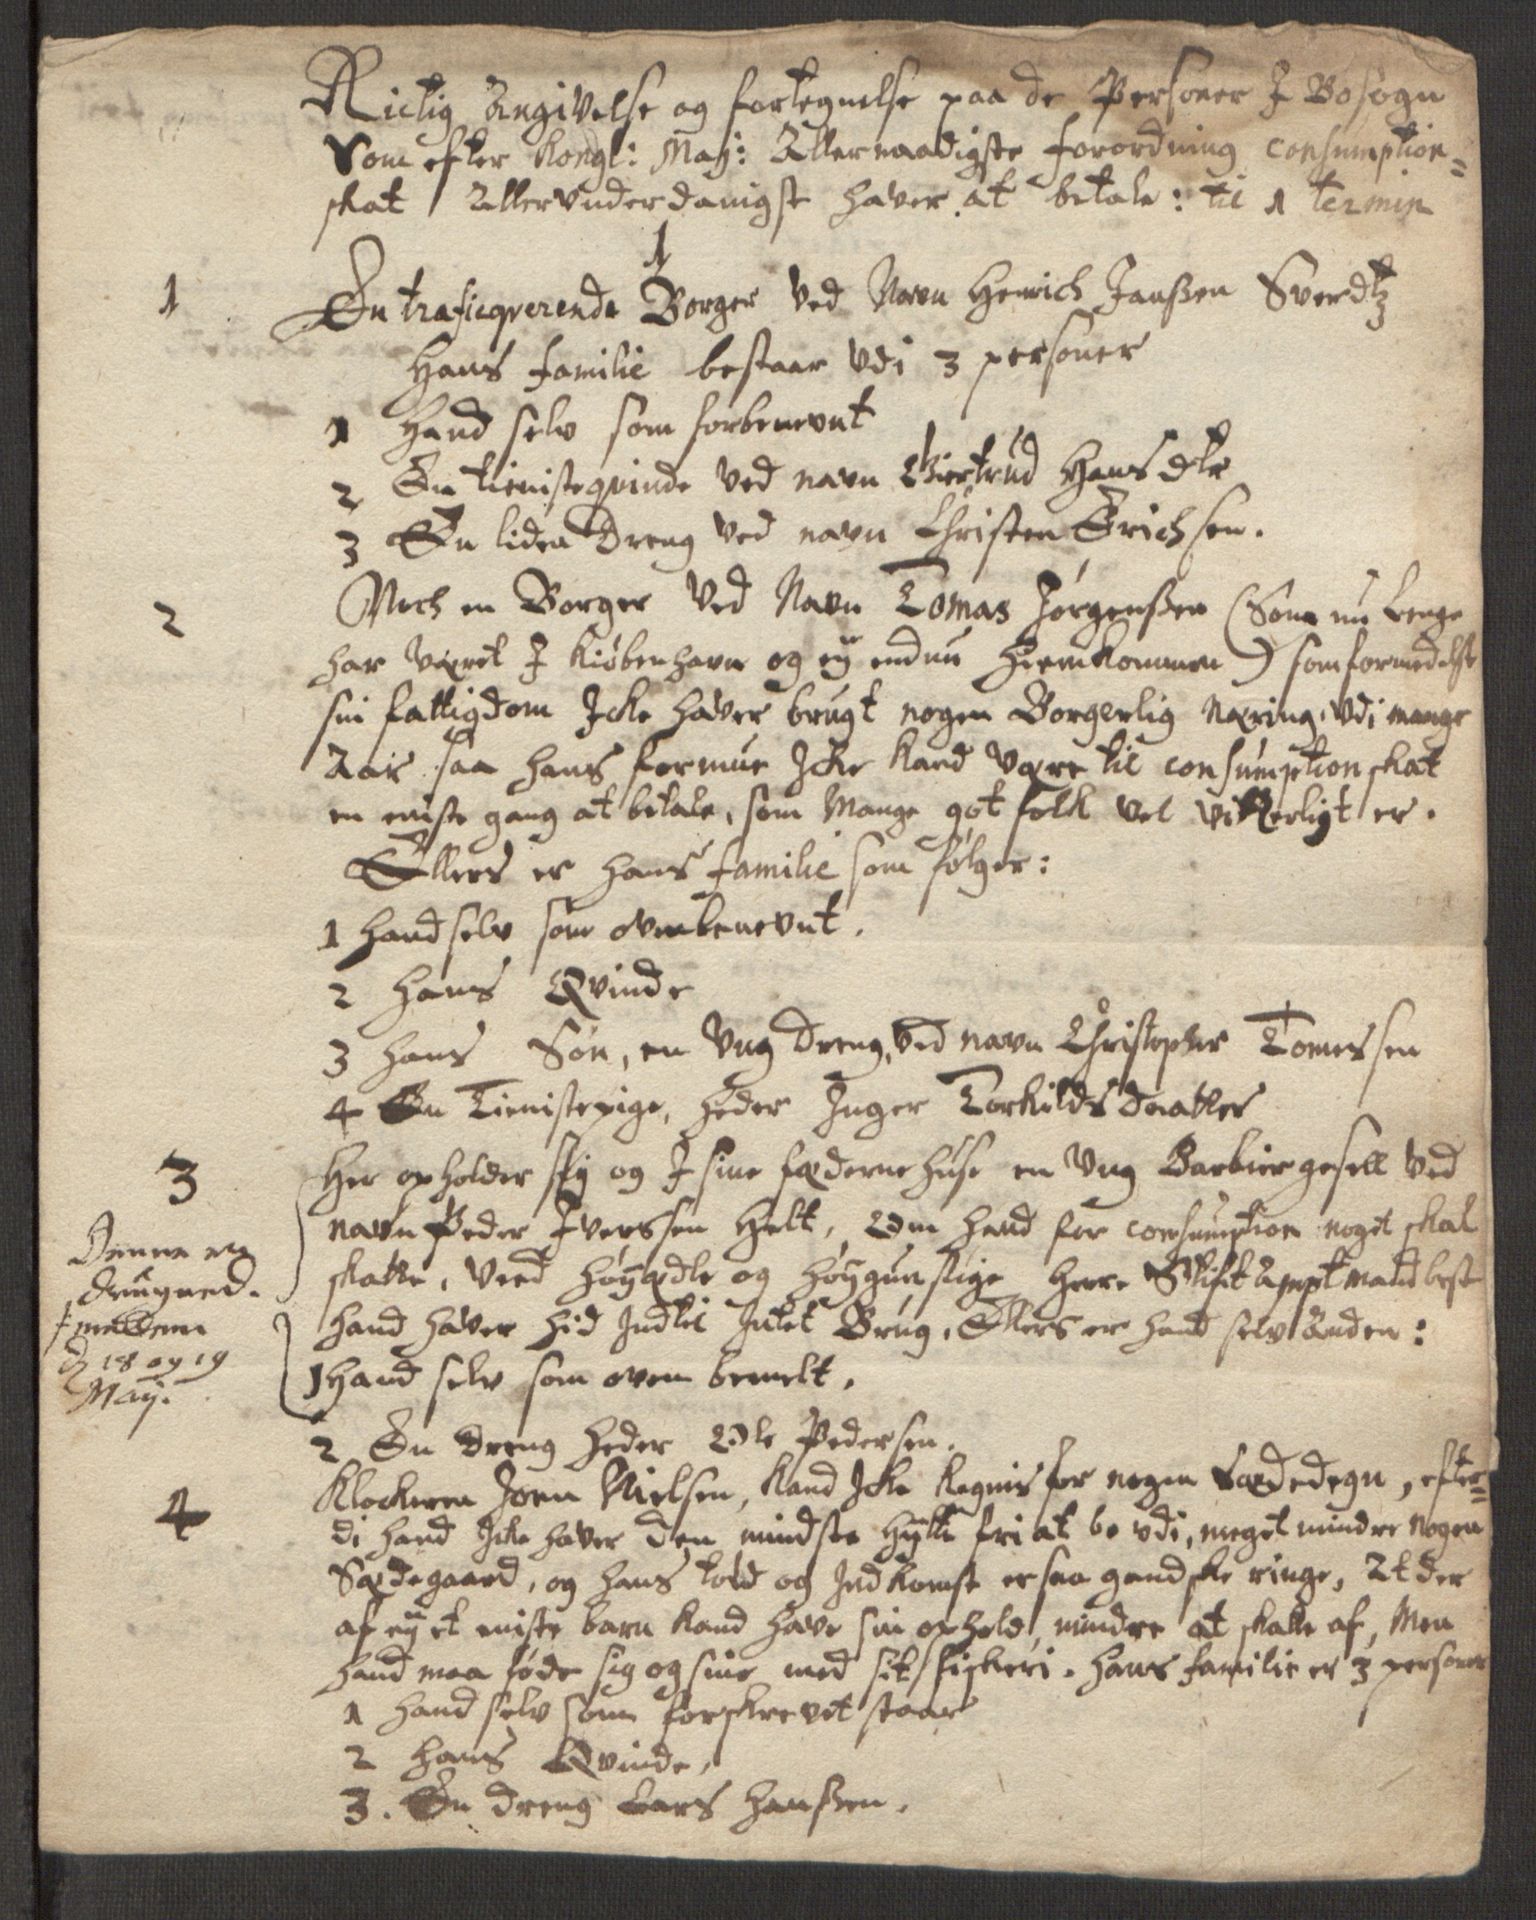 Rictig Angivelse og fortegnelse paa de Personer J Bosogn
Som efter Kongl: Maj: Allernaadigste forordning Consumption=
skat Allervnderdanigst haver at betale: til 1 termin
1
1 En traficqverende Borger ved Navn Henrich Janßen Sverdtz
Hans familie bestaar vdi 3 personer
1 Hand selv som forbenevnt
2 En tienisteqvinde ved navn Giertrud Hans dtr
3 En liden Dreng ved navn Christen Erichsen.
2 Noch en Borger ved Navn Tomas Jørgenßen (Som nu lenge
har været J Kiøbenhavn og eÿ endnu hiemkommen) som formedelst
sin fattigdom Jcke haver brugt nogen Borgerlig Næring vdi mange
Aar saa hans formue Jcke kand være til consumptionskat
en eniste gang at betale, som Mange got folk vel vitterligt er.
Ellers er hans familie som følger:
1 Hand selv som ovenbenevnt.
2 Hans Qvinde
3 Hans Søn, en Vng Dreng, ved navn Christopher Tomessen
4 En Tienistepige, heder Inger Torkilds Daatter
3 Her opholder sig og J sine fæderne huse en Vng Barbiergesell ved
navn Peder Iverssen Helt, Om hand for consumption noget skal
skatte, veed høÿædle og høÿgunstige Herre Stiftamptmand best
hand haver hid Indtil Intet Brug, Ellers er hand selv Anden:
Denne er
druqned.
mellem
d 18 og 19
Maÿ.
1 Hand selv som oven bemelt.
2 En Dreng heder Ole Pedersen.
4 Klockeren Joen Nielsen, kand Jcke Regnis for nogen Sædedegn, efter=
di hand Jcke haver den mindste hÿtte fri at bo vdi, meget mindre nogen
Sædegaard, og hans told og Indkomst er saa gandske ringe, At der
af eÿ et eniste barn kand have sin ophold, mindre at skatte af, Men
hand maa føde sig og sine med sit fiskeri. Hans familie er 3 personer
1 Hand selv som forskrevet staar
2 Hans Qvinde,
3. En dreng Lars Hanßen.